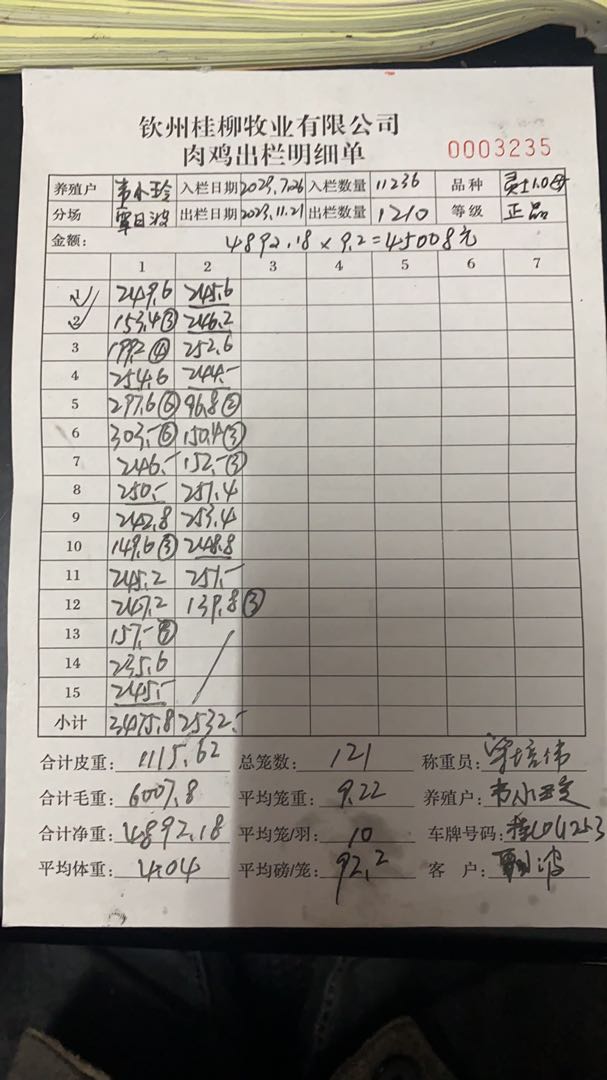 钦州桂柳牧业有限公司
肉鸡出栏明细单 0003235
养殖户 韦小玲 入栏日期 2023.7.26 入栏数量 11236 品种
分场 出栏日期 2023.11.21 出栏数量 1210 等级 正品
金额: 4892.18×9.2=45008元
1 2 3 4 5 6 7
1 249.6 245.6
2 153.4③ 246.2
3 199.2④ 252.6
4 254.6 244.-
5 297.6⑥ 96.8②
6 303.-⑥ 150.4③
7 246.- 152.-③
8 250.- 251.4
9 242.8 253.4
10 149.6③ 248.8
11 245.2 251.-
12 247.2 139.8③
13 157.-
14 235.6
15 245.-
小计 3475.8 2532.-
合计皮重: 1115.62 总笼数: 121 称重员:
合计毛重: 6007.8 平均笼重: 9.22 养殖户: 韦小玲
合计净重: 4892.18 平均笼/羽: 10 车牌号码:
平均体重: 4.04 平均磅/笼: 92.2 客 户: